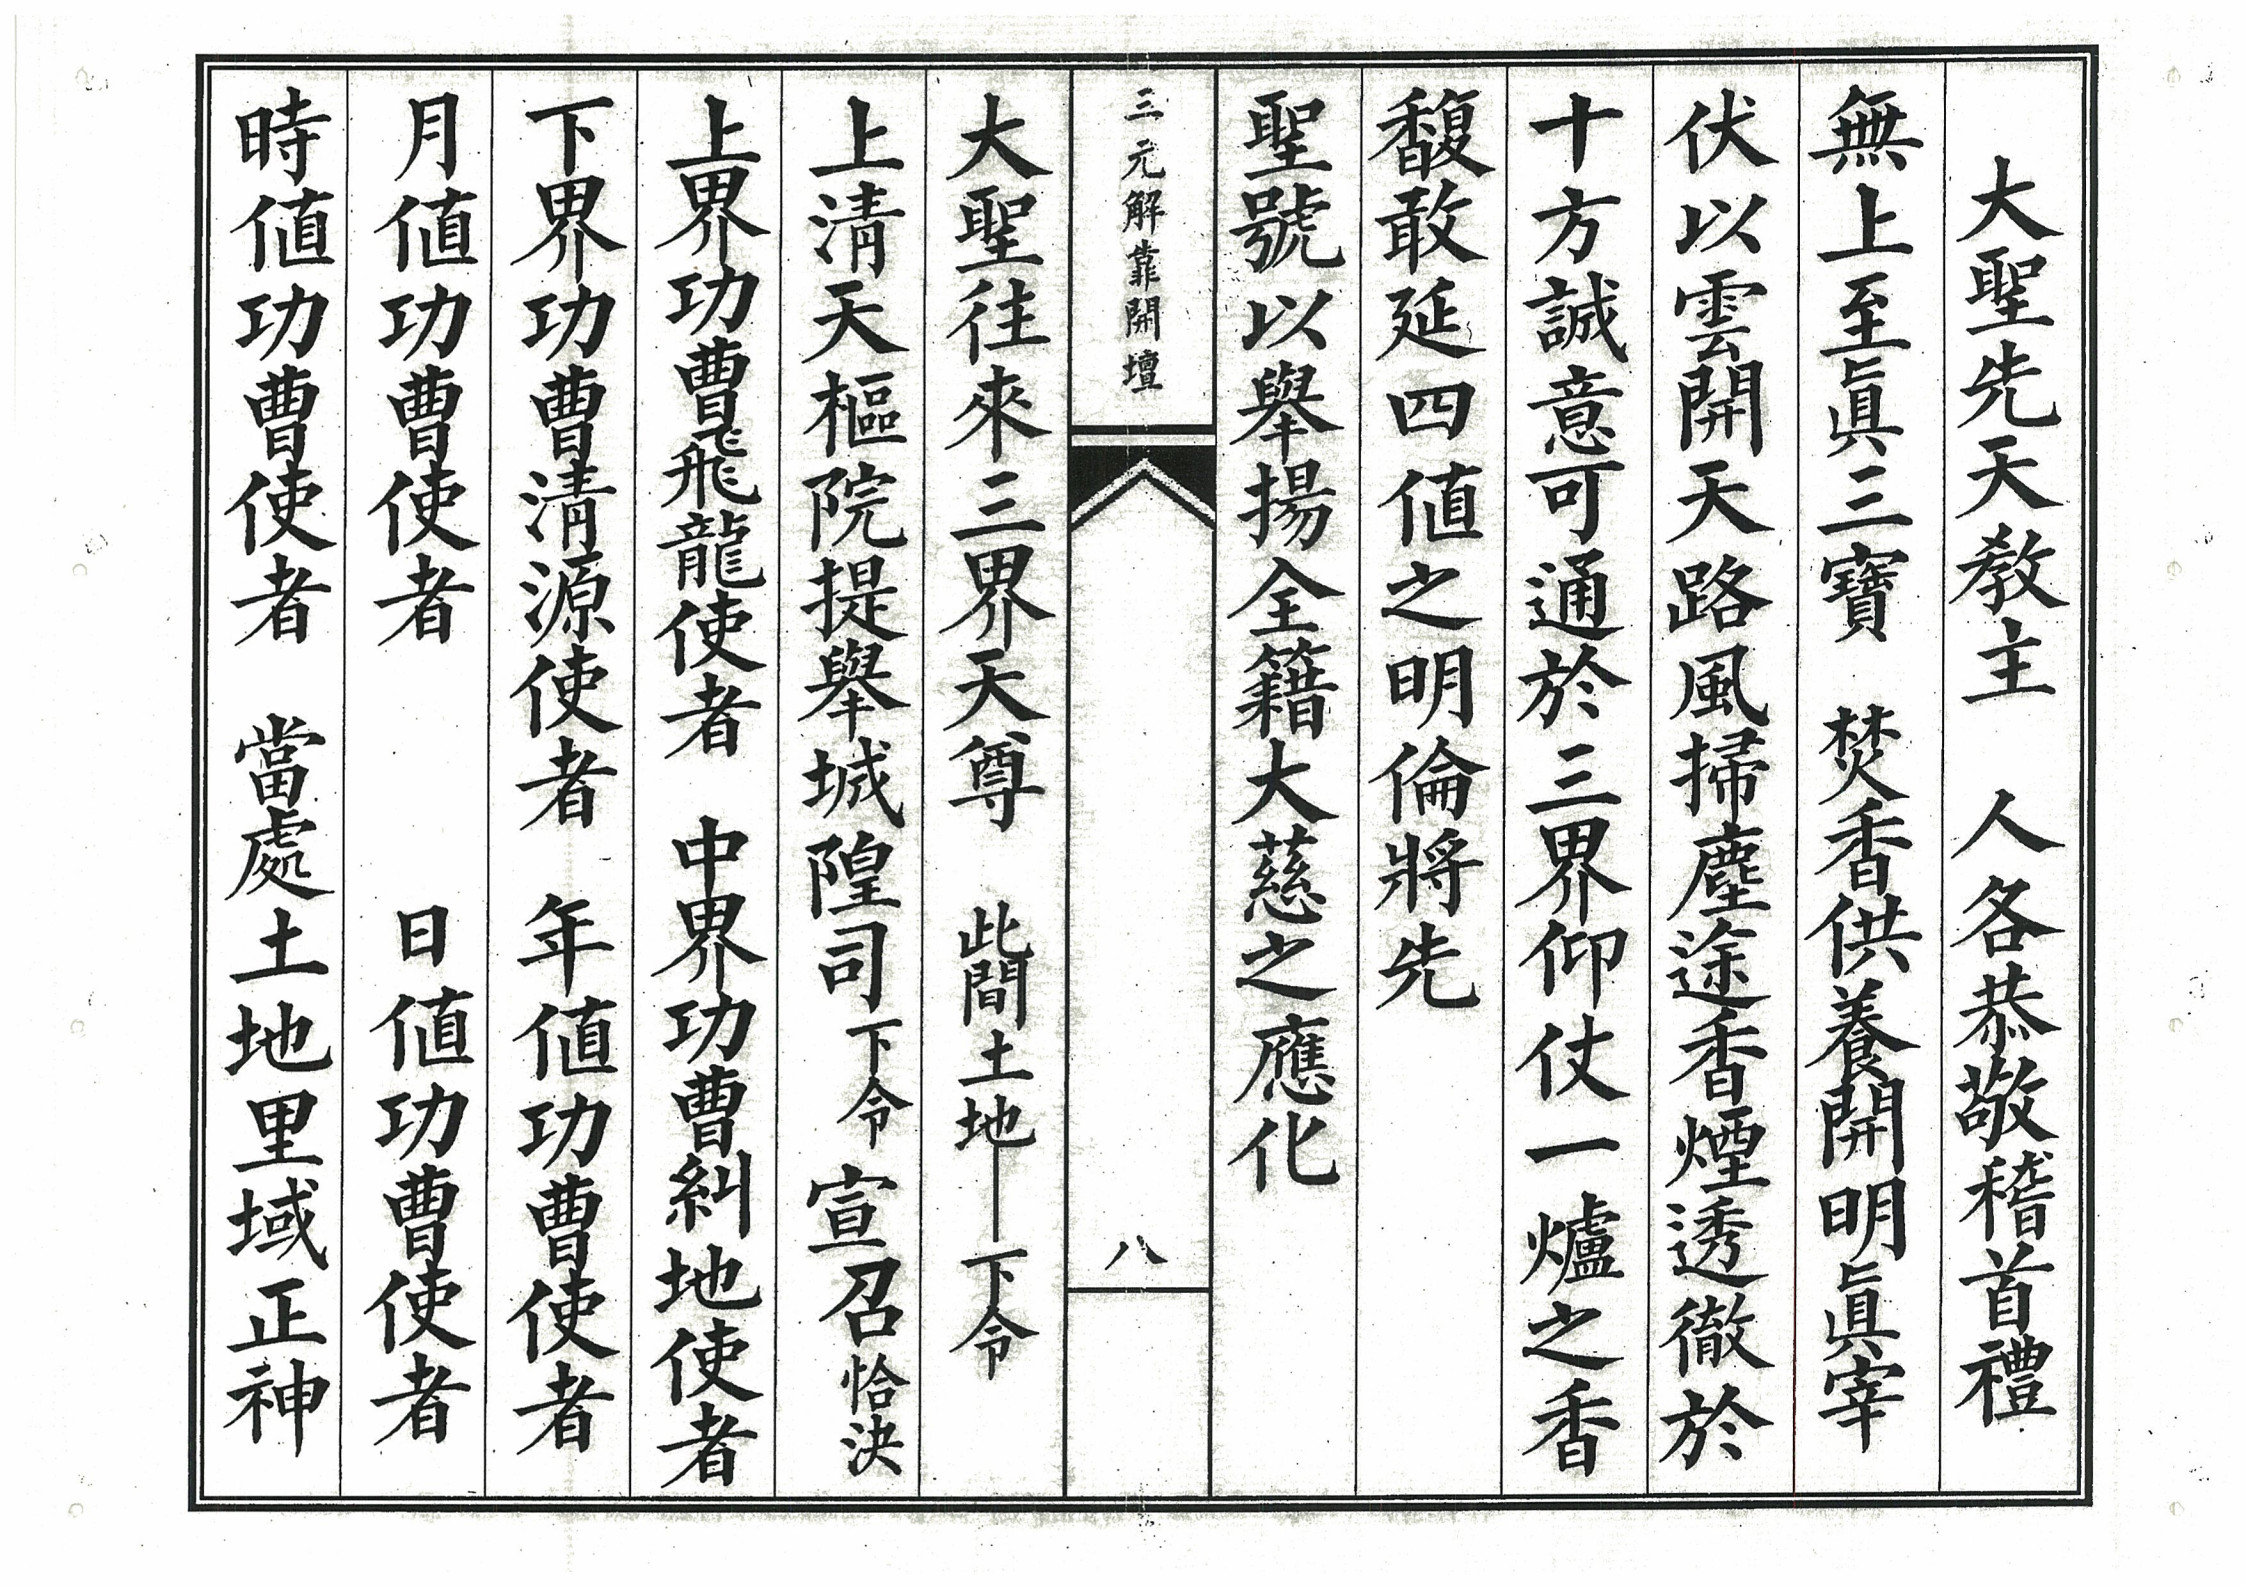 大聖先天教主　人各恭敬稽首禮
無上至眞三寶　焚香供養開明眞宰
伏以雲開天路風掃塵途香煙透徹於
十方誠意可通於三界仰仗一爐之香
馥敢延四値之明倫將先
聖號以舉揚全籍大慈之應化
三元解靠開壇
八
大聖往來三界天尊　此間土地—下令
上清天樞院提舉城隍司下令　宣召恰決
上界功曹飛龍使者　中界功曹糾地使者
下界功曹清源使者　年値功曹使者
月値功曹使者　日値功曹使者
時値功曹使者　當處土地里域正神